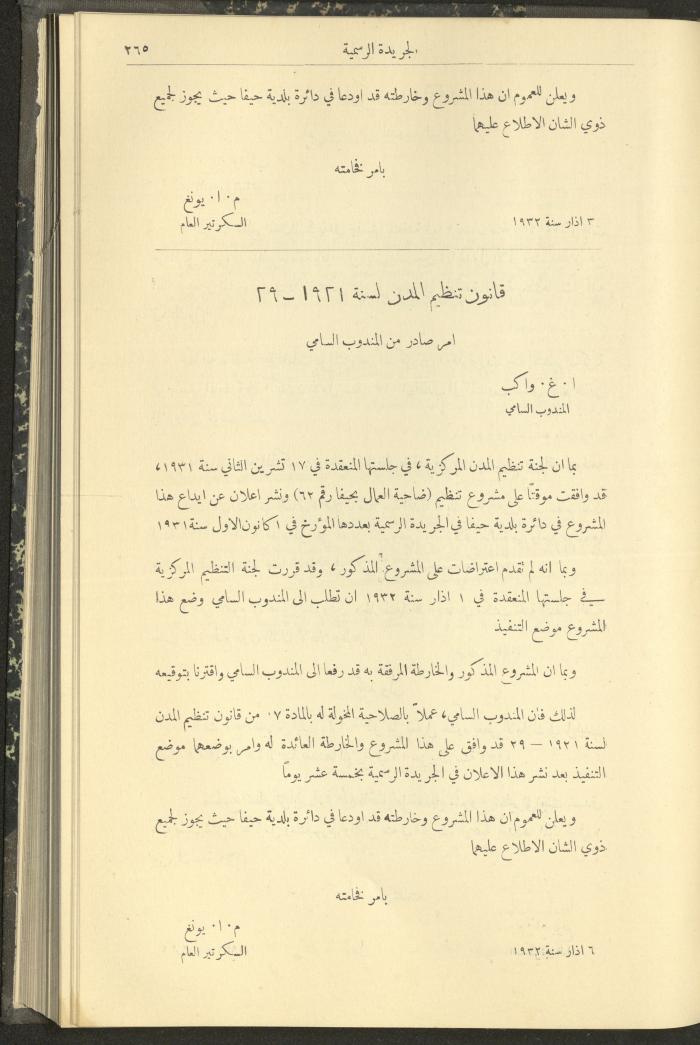 الجريدة الرسمية ٢٦٥
ويعلن للعموم ان هذا المشروع وخارطته قد اودعا في دائرة بلدية حيفا حيث يجوز لجميع
ذوي الشان الاطلاع عليهما
بامر فخامته
م٠ا٠ يونغ
٣ اذار سنة ١٩٣٢ السكرتير العام
قانون تنظيم المدن لسنة ١٩٢١ – ٢٩
امر صادر من المندوب السامي
ا٠ غ٠ واكب
المندوب السامي
بما ان لجنة تنظيم المدن المركزية، في جلستها المنعقدة في ١٧ تشرين الثاني سنة ١٩٣١،
قد وافقت موقتًا على مشروع تنظيم (ضاحية العمال بحيفا رقم ٦٢) ونشر اعلان عن ايداع هذا
المشروع في دائرة بلدية حيفا في الجريدة الرسمية بعددها المؤرخ في ١ كانون الاول سنة ١٩٣١
وبما انه لم تقدم اعتراضات على المشروع المذكور، وقد قررت لجنة التنظيم المركزية
في جلستها المنعقدة في ١ اذار سنة ١٩٣٢ ان تطلب الى المندوب السامي وضع هذا
المشروع موضع التنفيذ
وبما ان المشروع المذكور والخارطة المرفقة به قد رفعا الى المندوب السامي واقترنا بتوقيعه
لذلك فان المندوب السامي، عملاً بالصلاحية المخولة له بالمادة ٠٧ من قانون تنظيم المدن
لسنة ١٩٢١ – ٢٩ قد وافق على هذا المشروع والخارطة العائدة له وامر بوضعهما موضع
التنفيذ بعد نشر هذا الاعلان في الجريدة الرسمية بخمسة عشر يومًا
ويعلن للعموم ان هذا المشروع وخارطته قد اودعا في دائرة بلدية حيفا حيث يجوز لجميع
ذوي الشان الاطلاع عليهما
بامر فخامته
م٠ا٠ يونغ
٦ اذار سنة ١٩٣٢ السكرتير العام